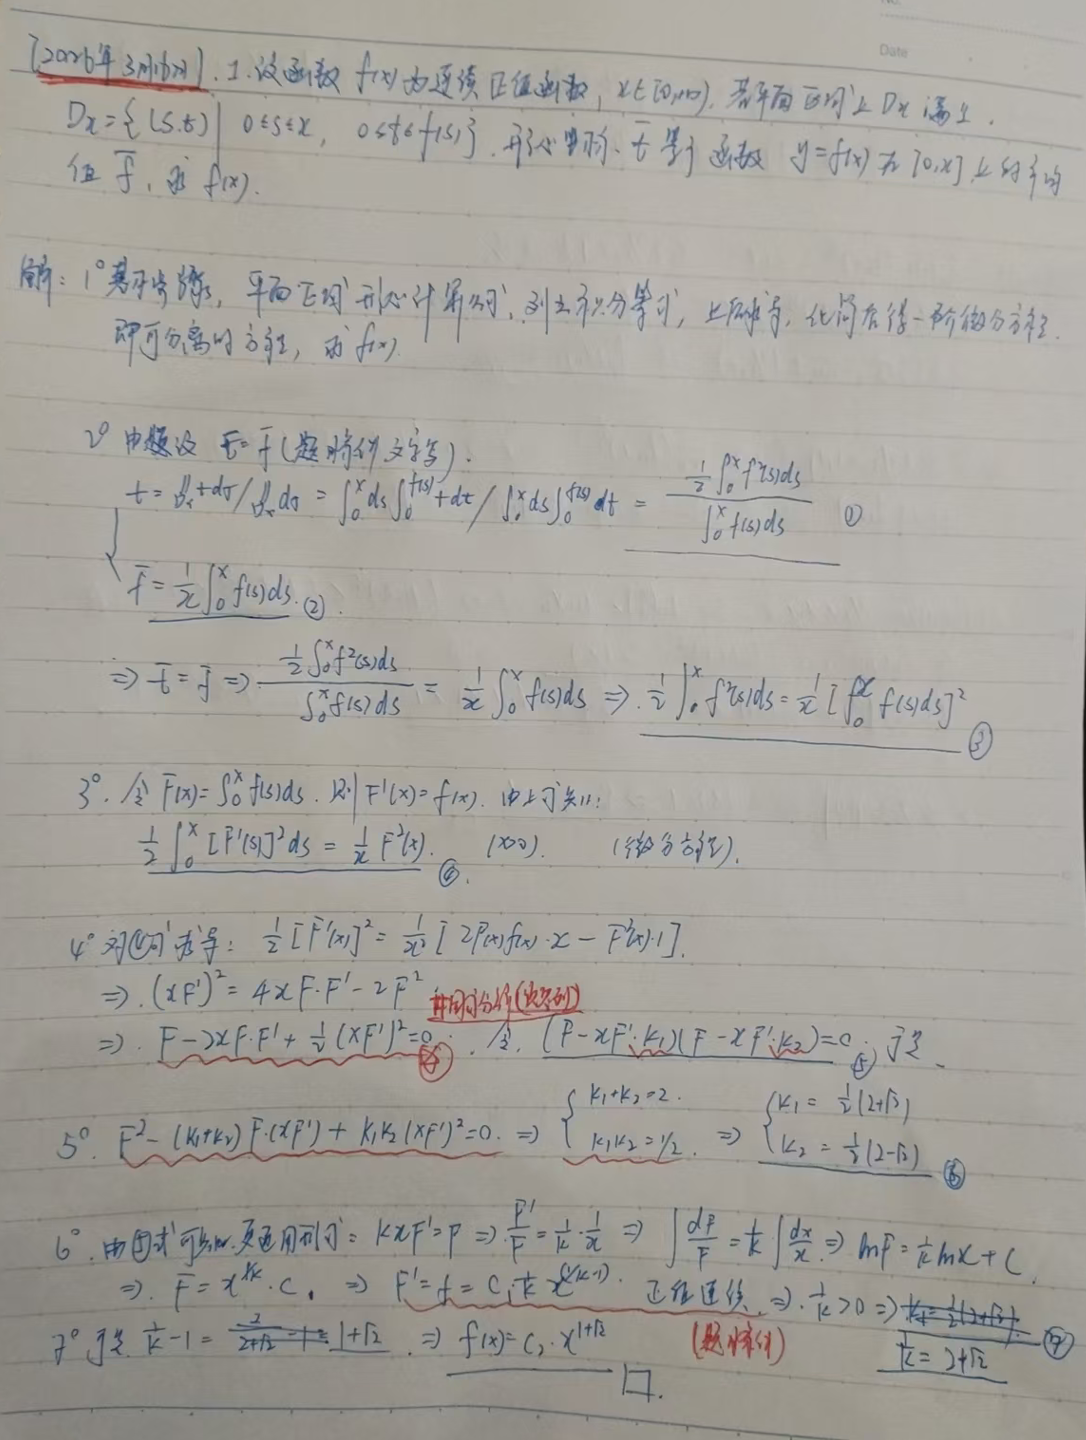 No.
Date
[2026年3月16日]. 1. 设函数 f(x) 为连续正值函数, x∈[0,+∞). 若平面区域上 Dx 满足.
Dx={(s.t)| 0≤s≤x, 0≤t≤f(s)}. 形心 坐标 t̄ 等于函数 y=f(x) 在 [0,x] 上的平均
值 f̄, 求 f(x).
解: 1° 基于步骤, 平面区域形心计算公式, 列出积分等式, 上限求导, 化简后得一阶微分方程.
即可分离的方程, 求 f(x).
2° 由题设 t̄=f̄ (题目条件文字等).
t=∬Dx t dσ/∬Dx dσ = ∫₀ˣds∫₀^f(s) t dt / ∫₀ˣds∫₀^f(s) dt = ½∫₀ˣf²(s)ds / ∫₀ˣf(s)ds ①
f̄=1/x ∫₀ˣ f(s)ds. ②.
⇒ t̄=f̄ ⇒ ½∫₀ˣf²(s)ds / ∫₀ˣf(s)ds = 1/x ∫₀ˣ f(s)ds ⇒ ½∫₀ˣ f²(s)ds = 1/x [∫₀ˣ f(s)ds]² ③
3°. 令 F(x)=∫₀ˣf(s)ds. 则 F'(x)=f(x). 由上可知:
½∫₀ˣ [F'(s)]²ds = 1/x F²(x). (x>0). (微分方程). ④.
4° 对④式求导: ½[F'(x)]² = 1/x² [2F(x)f(x)·x − F²(x)·1].
⇒. (xF')² = 4xF·F' − 2F²
⇒. F−2xF·F'+½(xF')²=0. 令. (F−xF'·k₁)(F−xF'·k₂)=0. ⑤ 于是
5°. F²−(k₁+k₂)F·(xF')+k₁k₂(xF')²=0. ⇒ {k₁+k₂=2. k₁k₂=1/2. ⇒ {k₁=½(2+√2) k₂=½(2−√2) ⑥
6°. 由⑤式可知. 更通用形式: kxF'=F ⇒ F'/F=1/k·1/x ⇒ ∫dF/F=1/k∫dx/x ⇒ lnF=1/k lnx+C.
⇒. F=x^(1/k)·C. ⇒ F'=f=C·1/k x^(1/k−1). 正值连续 ⇒. 1/k>0 ⇒ (题目条件)
1/k=2+√2 ⑦
7° 于是 1/k−1= 1+√2 ⇒ f(x)=C₂·x^(1+√2) □.